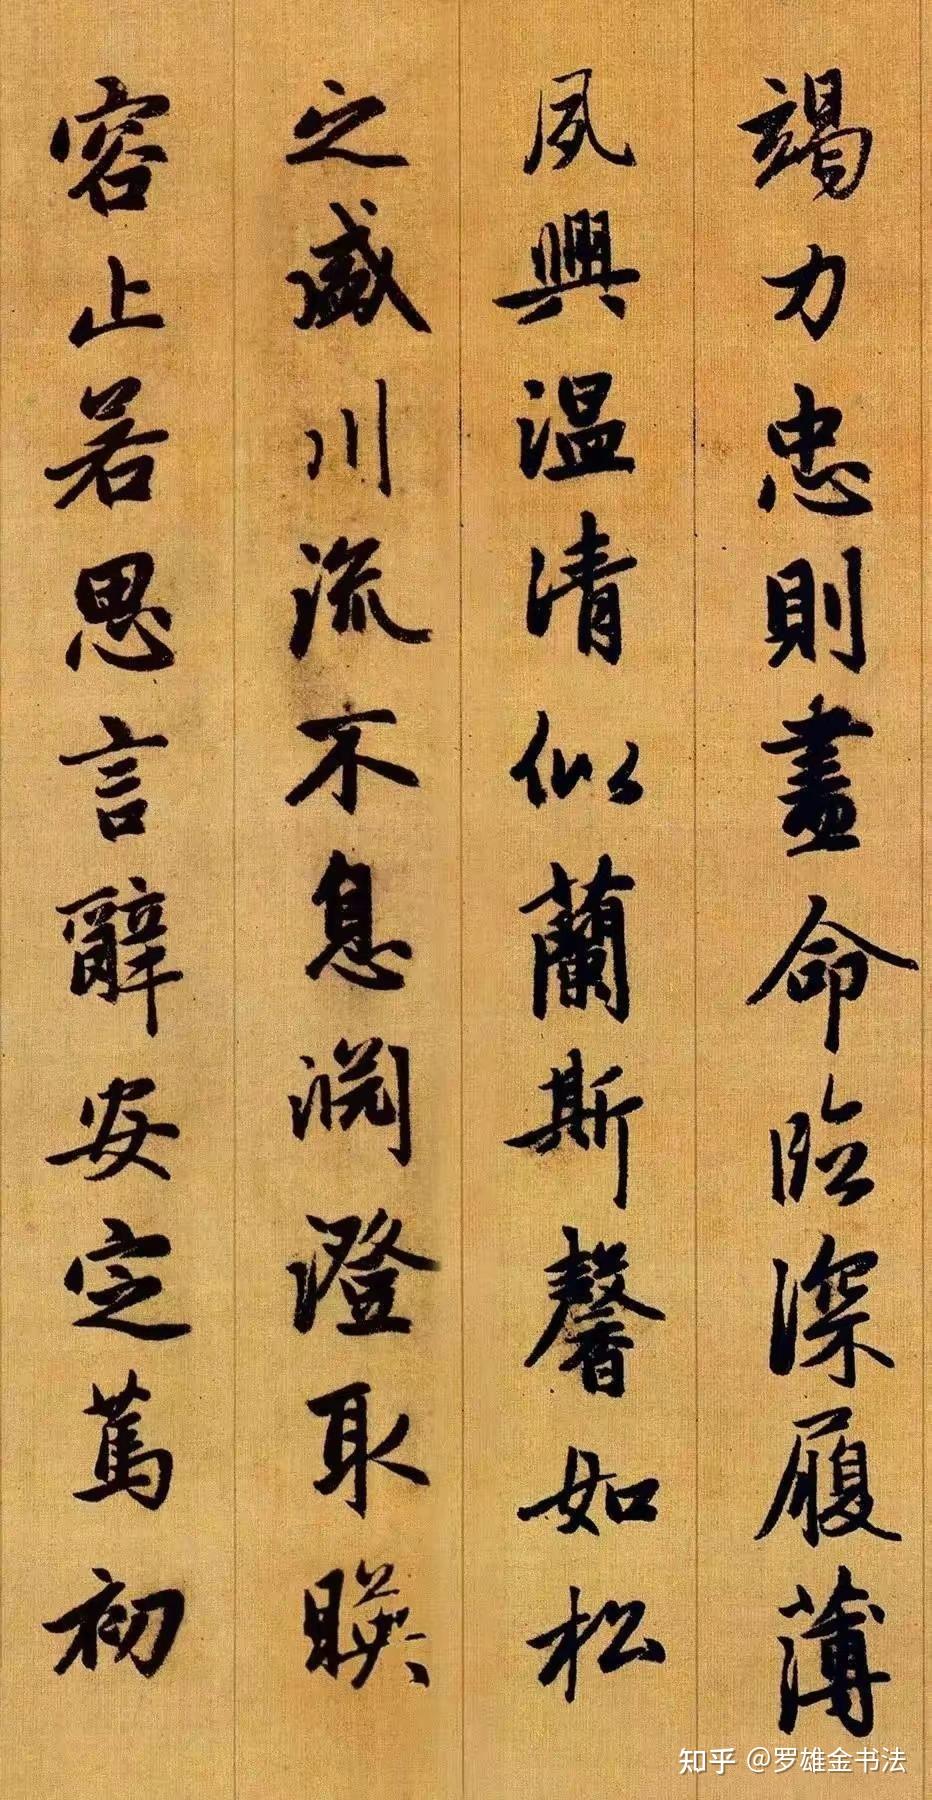 竭力忠則盡命臨深履薄
夙興温清似蘭斯馨如松
之盛川流不息淵澄取暎
容止若思言辭安定篤初
知乎 @罗雄金书法